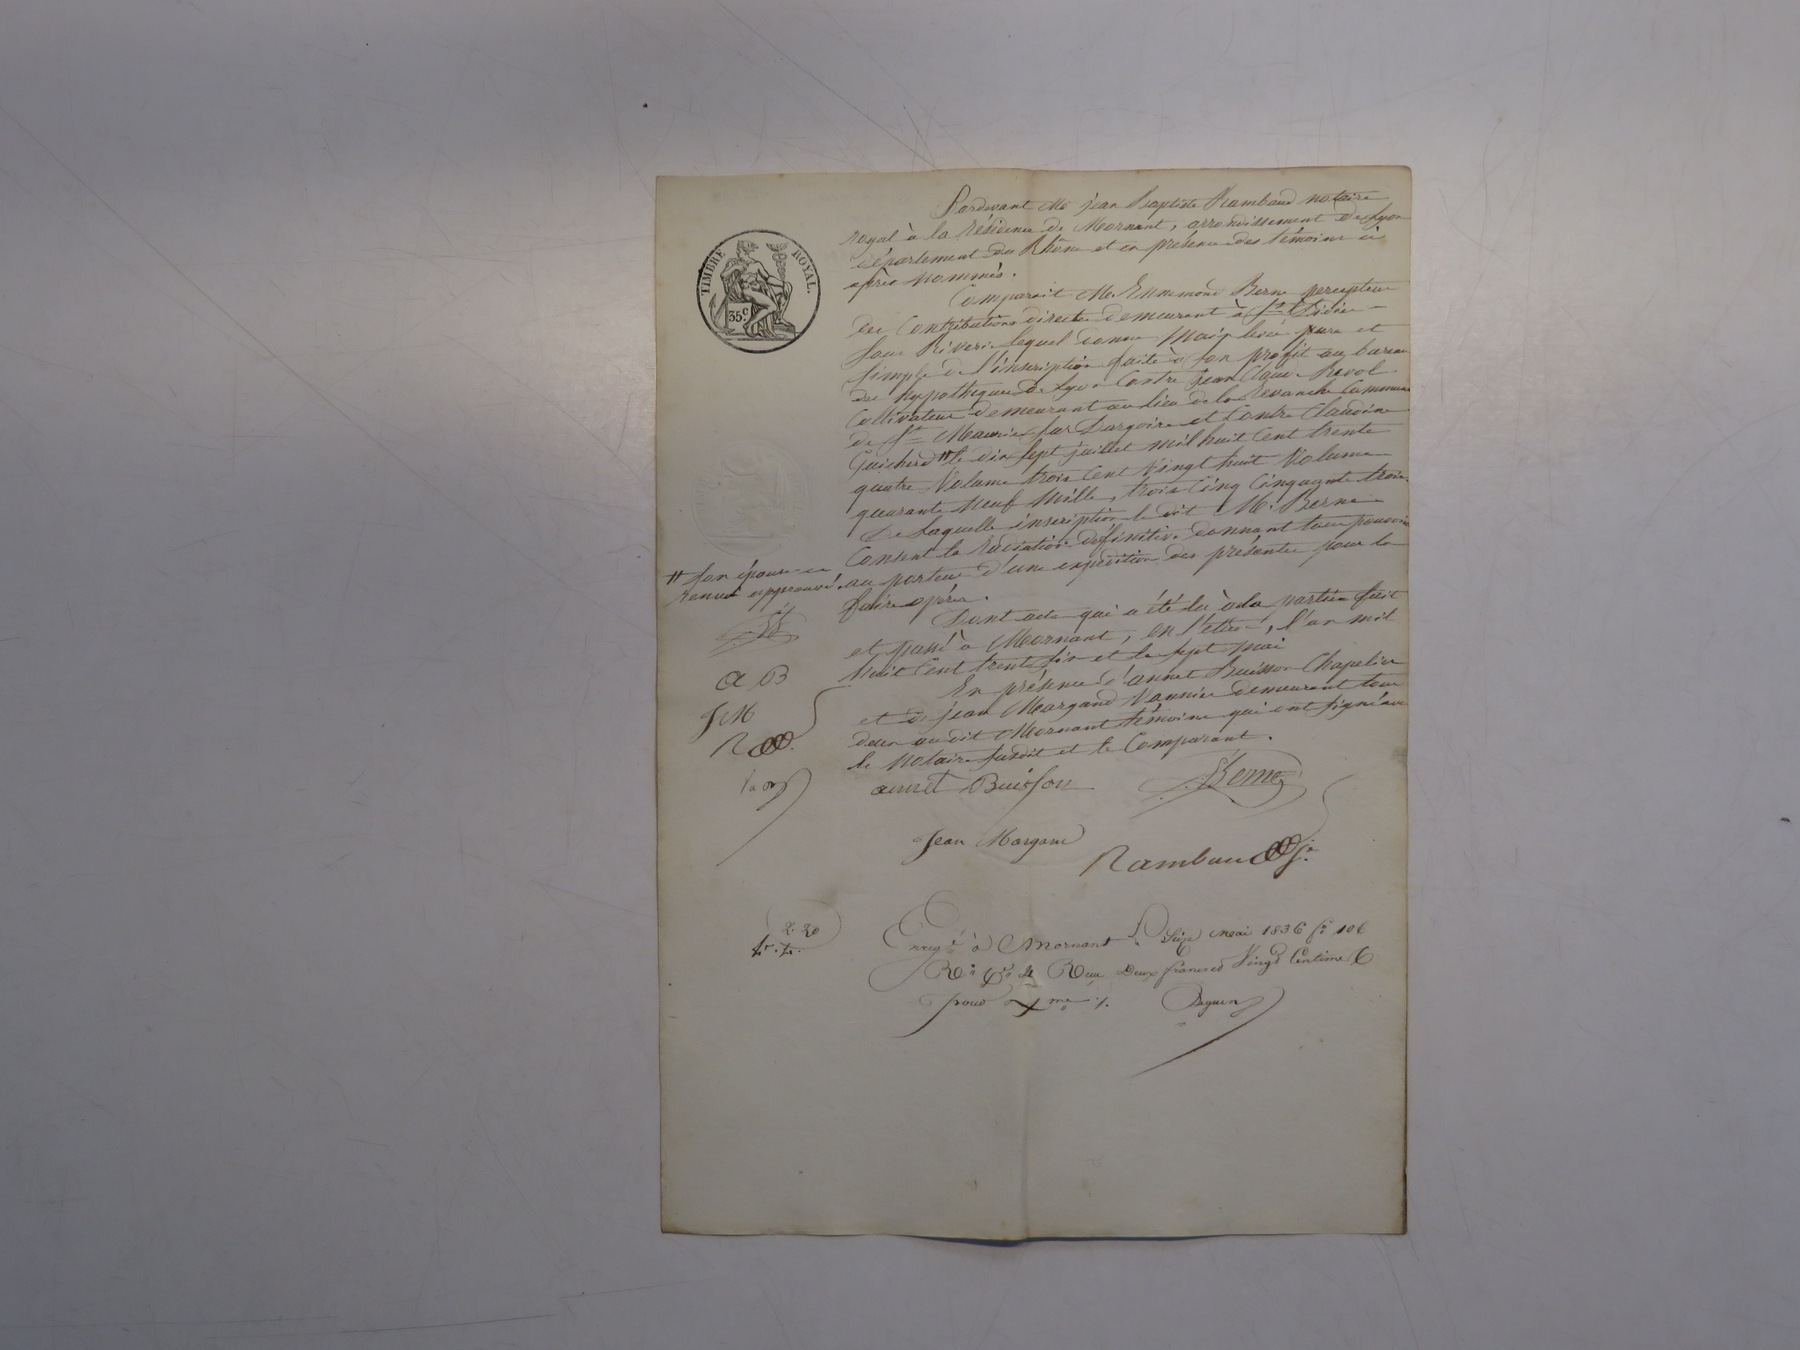 TIMBRE ROYAL.
35 c.
Pardevant Me jean Baptiste Rambaud notaire
royal à la résidence de Mornant, arrondissement de Lyon
département du Rhône et en présence des témoins ci
après nommés.
Comparait Mr. Ennemond Berne percepteur
des Contributions directes demeurant à St Didier
sous Riverie lequel donne Main levée pure et
simple de l'inscription faite à son profit au bureau
des hypothèques de Lyon Contre jean Claude Revol
Cultivateur demeurant au lieu de la Revanche Commune
de St Maurice sur Dargoire et Contre Claudine
Guicherd # le dix sept juillet mil huit Cent trente
quatre Volume trois Cent Vingt huit Volume
quarante Neuf Mille, trois Cinq Cinquante trois.
De laquelle inscription le dit Mr. Berne
Consent la radiation définitive donnant tous pouvoirs
au porteur d'une expédition des présentes pour la
faire opérer.
# son épouse
renvoi approuvé.
Dont acte qui a été lu à la partie fait
et passé à Mornant, en l'étude, l'an mil
huit Cent trente six et le sept mai
En présence d'annet Buisson Chapelier
et de jean Margand Vannier demeurant tous
deux au dit Mornant témoins qui ont signé avec
le Notaire susdit et le Comparant.
A B
J M
R
annet Buisson
Berne
Jean Margand
Rambaud
2. 20
Enregé à Mornant le Seize Mai 1836 fo 106
Ro Reçu Deux francs Vingt Centimes
pour Xme